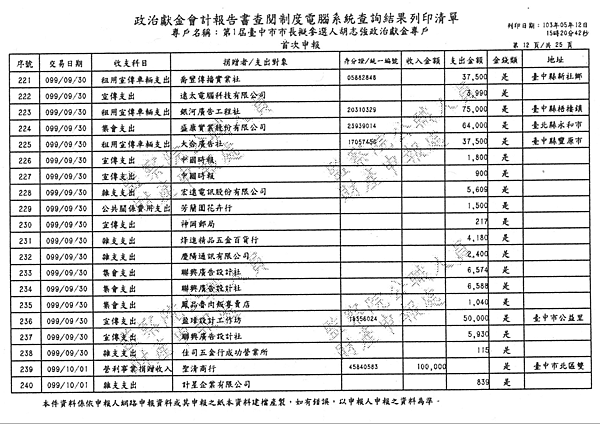 政治獻金會計報告書查閱制度電腦系統查詢結果列印清單
專戶名稱：第1屆臺中市市長擬參選人胡志強政治獻金專戶
首次申報
列印日期：103年05月12日
15時20分42秒
第 12 頁/共 25 頁
序號 交易日期 收支科目 捐贈者/支出對象 身分證/統一編號 收入金額 支出金額 金錢類 地址
221 099/09/30 租用宣傳車輛支出 喬登傳播實業社 05682848 37,500 是 臺中縣新社鄉
222 099/09/30 宣傳支出 遠太電腦科技有限公司 3,990 是
223 099/09/30 租用宣傳車輛支出 銀河廣告工程社 20310329 75,000 是 臺中縣梧棲鎮
224 099/09/30 集會支出 盛康實業股份有限公司 23939014 64,000 是 臺北縣永和市
225 099/09/30 租用宣傳車輛支出 大企廣告社 17057456 37,500 是 臺中縣豐原市
226 099/09/30 宣傳支出 中國時報 1,800 是
227 099/09/30 宣傳支出 中國時報 900 是
228 099/09/30 雜支支出 宏遠電訊股份有限公司 5,609 是
229 099/09/30 公共關係費用支出 芳蘭園花卉行 1,500 是
230 099/09/30 宣傳支出 神岡郵局 217 是
231 099/09/30 雜支支出 烽進精品五金百貨行 4,180 是
232 099/09/30 雜支支出 慶陽通訊有限公司 2,400 是
233 099/09/30 集會支出 聯興廣告設計社 6,574 是
234 099/09/30 集會支出 聯興廣告設計社 6,588 是
235 099/09/30 集會支出 鳳品魯肉飯專賣店 1,040 是
236 099/09/30 宣傳支出 盈瑋設計工作坊 50,000 是 臺中市公益里
237 099/09/30 宣傳支出 聯興廣告設計社 5,930 是
238 099/09/30 雜支支出 佳司五金行成功營業所 115 是
239 099/10/01 營利事業捐贈收入 聖清商行 45840583 100,000 是 臺中市北區雙
240 099/10/01 雜支支出 計星企業有限公司 839 是
本件資料係依申報人網路申報資料或其申報之紙本資料建檔產製，如有錯誤，以申報人申報之資料為準。
監察院公職人員
財產申報處